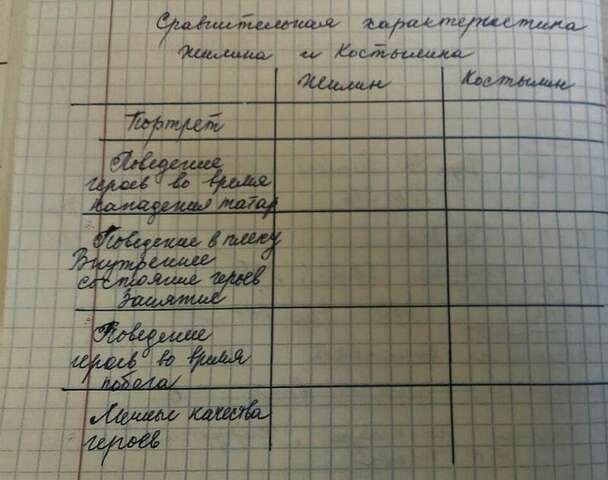 Сравнительная характеристика
Жилина и Костылина
Жилин Костылин
Портрет
Поведение
героев во время
нападения татар
Поведение в плену
Внутреннее
состояние героев
Занятие
Поведение
героев во время
побега
Личные качества
героев